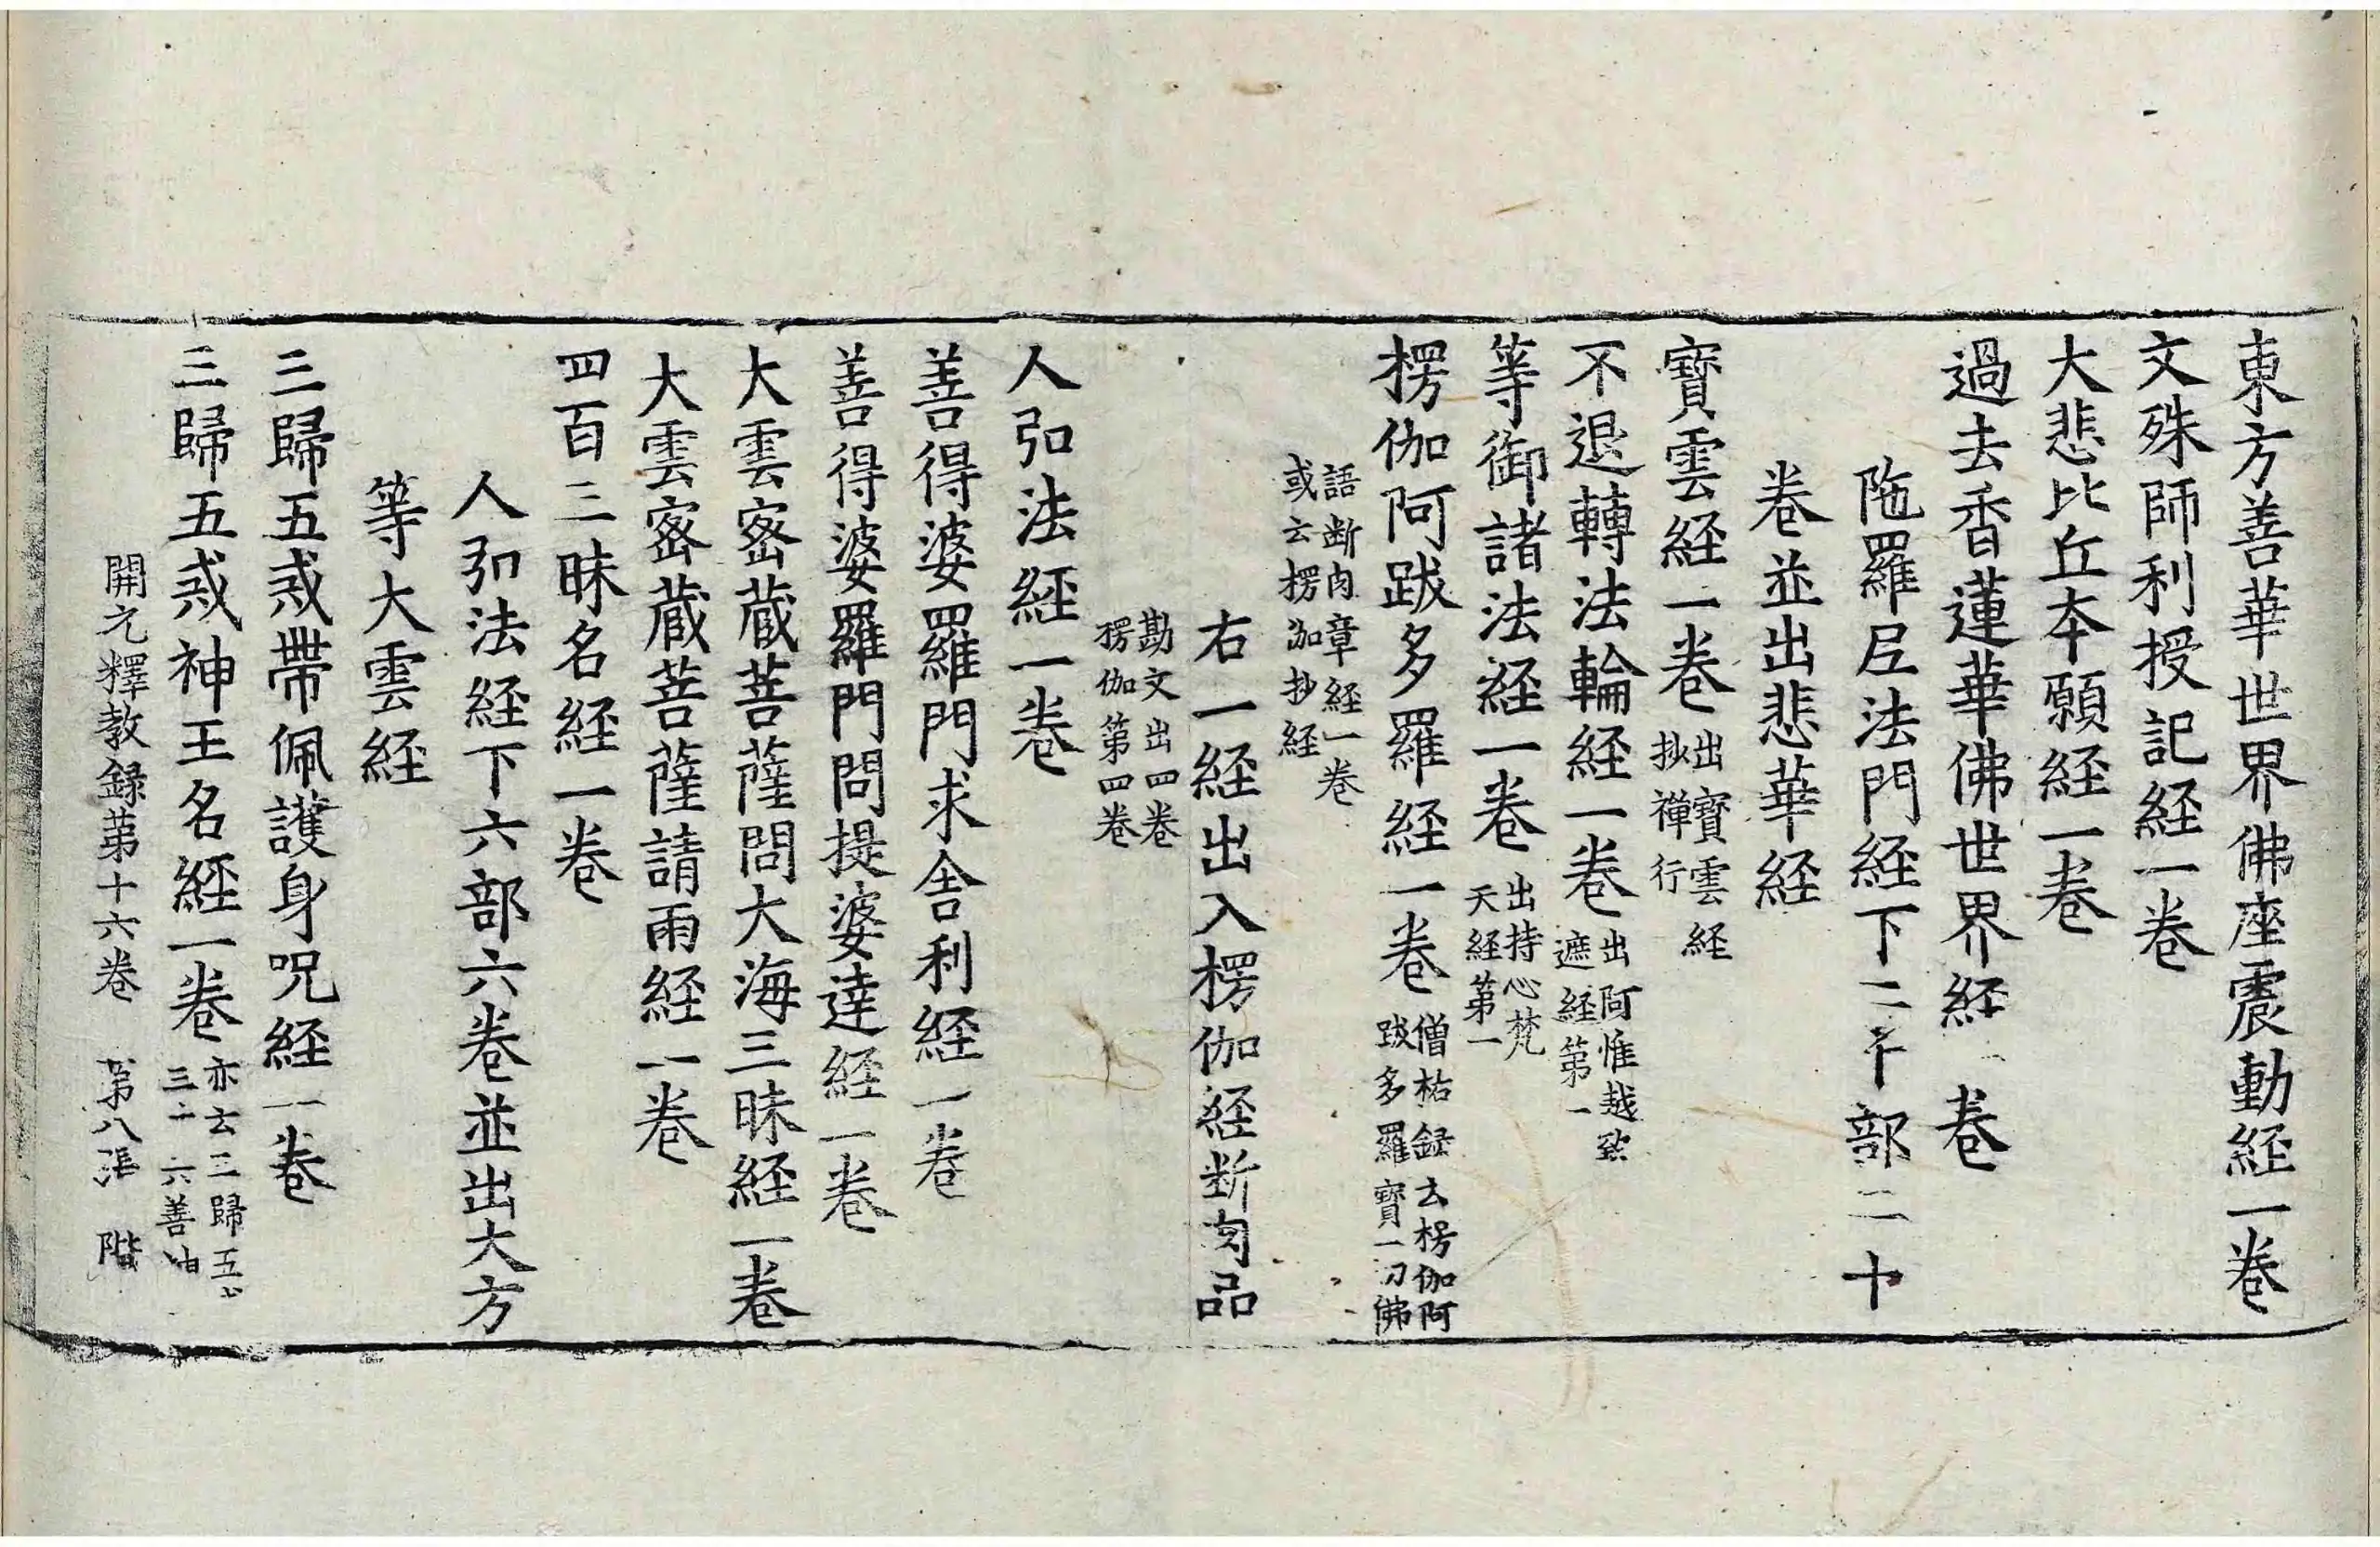 東方善華世界佛座震動経一卷
文殊師利授記経一卷
大悲比丘夲願経一卷
過去香蓮華佛世界経一卷
陁羅尼法門経下二十部二十
卷並出悲華経
寶雲経一卷出寶雲経
抄禪行
不退轉法輪経一卷出阿惟越致
遮経第一
等御諸法経一卷出持心梵
天経第一
楞伽阿跋多羅経一卷僧祐録云楞伽阿
跋多羅寶一切佛
語断肉章経一卷
或云楞伽抄経
右一経出入楞伽経断肉品
勘文出四卷
楞伽第四卷
人弘法経一卷
善得婆羅門求舍利経一卷
善得婆羅門問提婆達経一卷
大雲密蔵菩薩問大海三昧経一卷
大雲密蔵菩薩請雨経一卷
四百三昧名経一卷
人弘法経下六部六卷並出大方
等大雲経
三歸五戒帶佩護身呪経一卷
三歸五戒神王名経一卷亦云三歸五
三十六善神
開元釋教録第十六卷 第八張 階